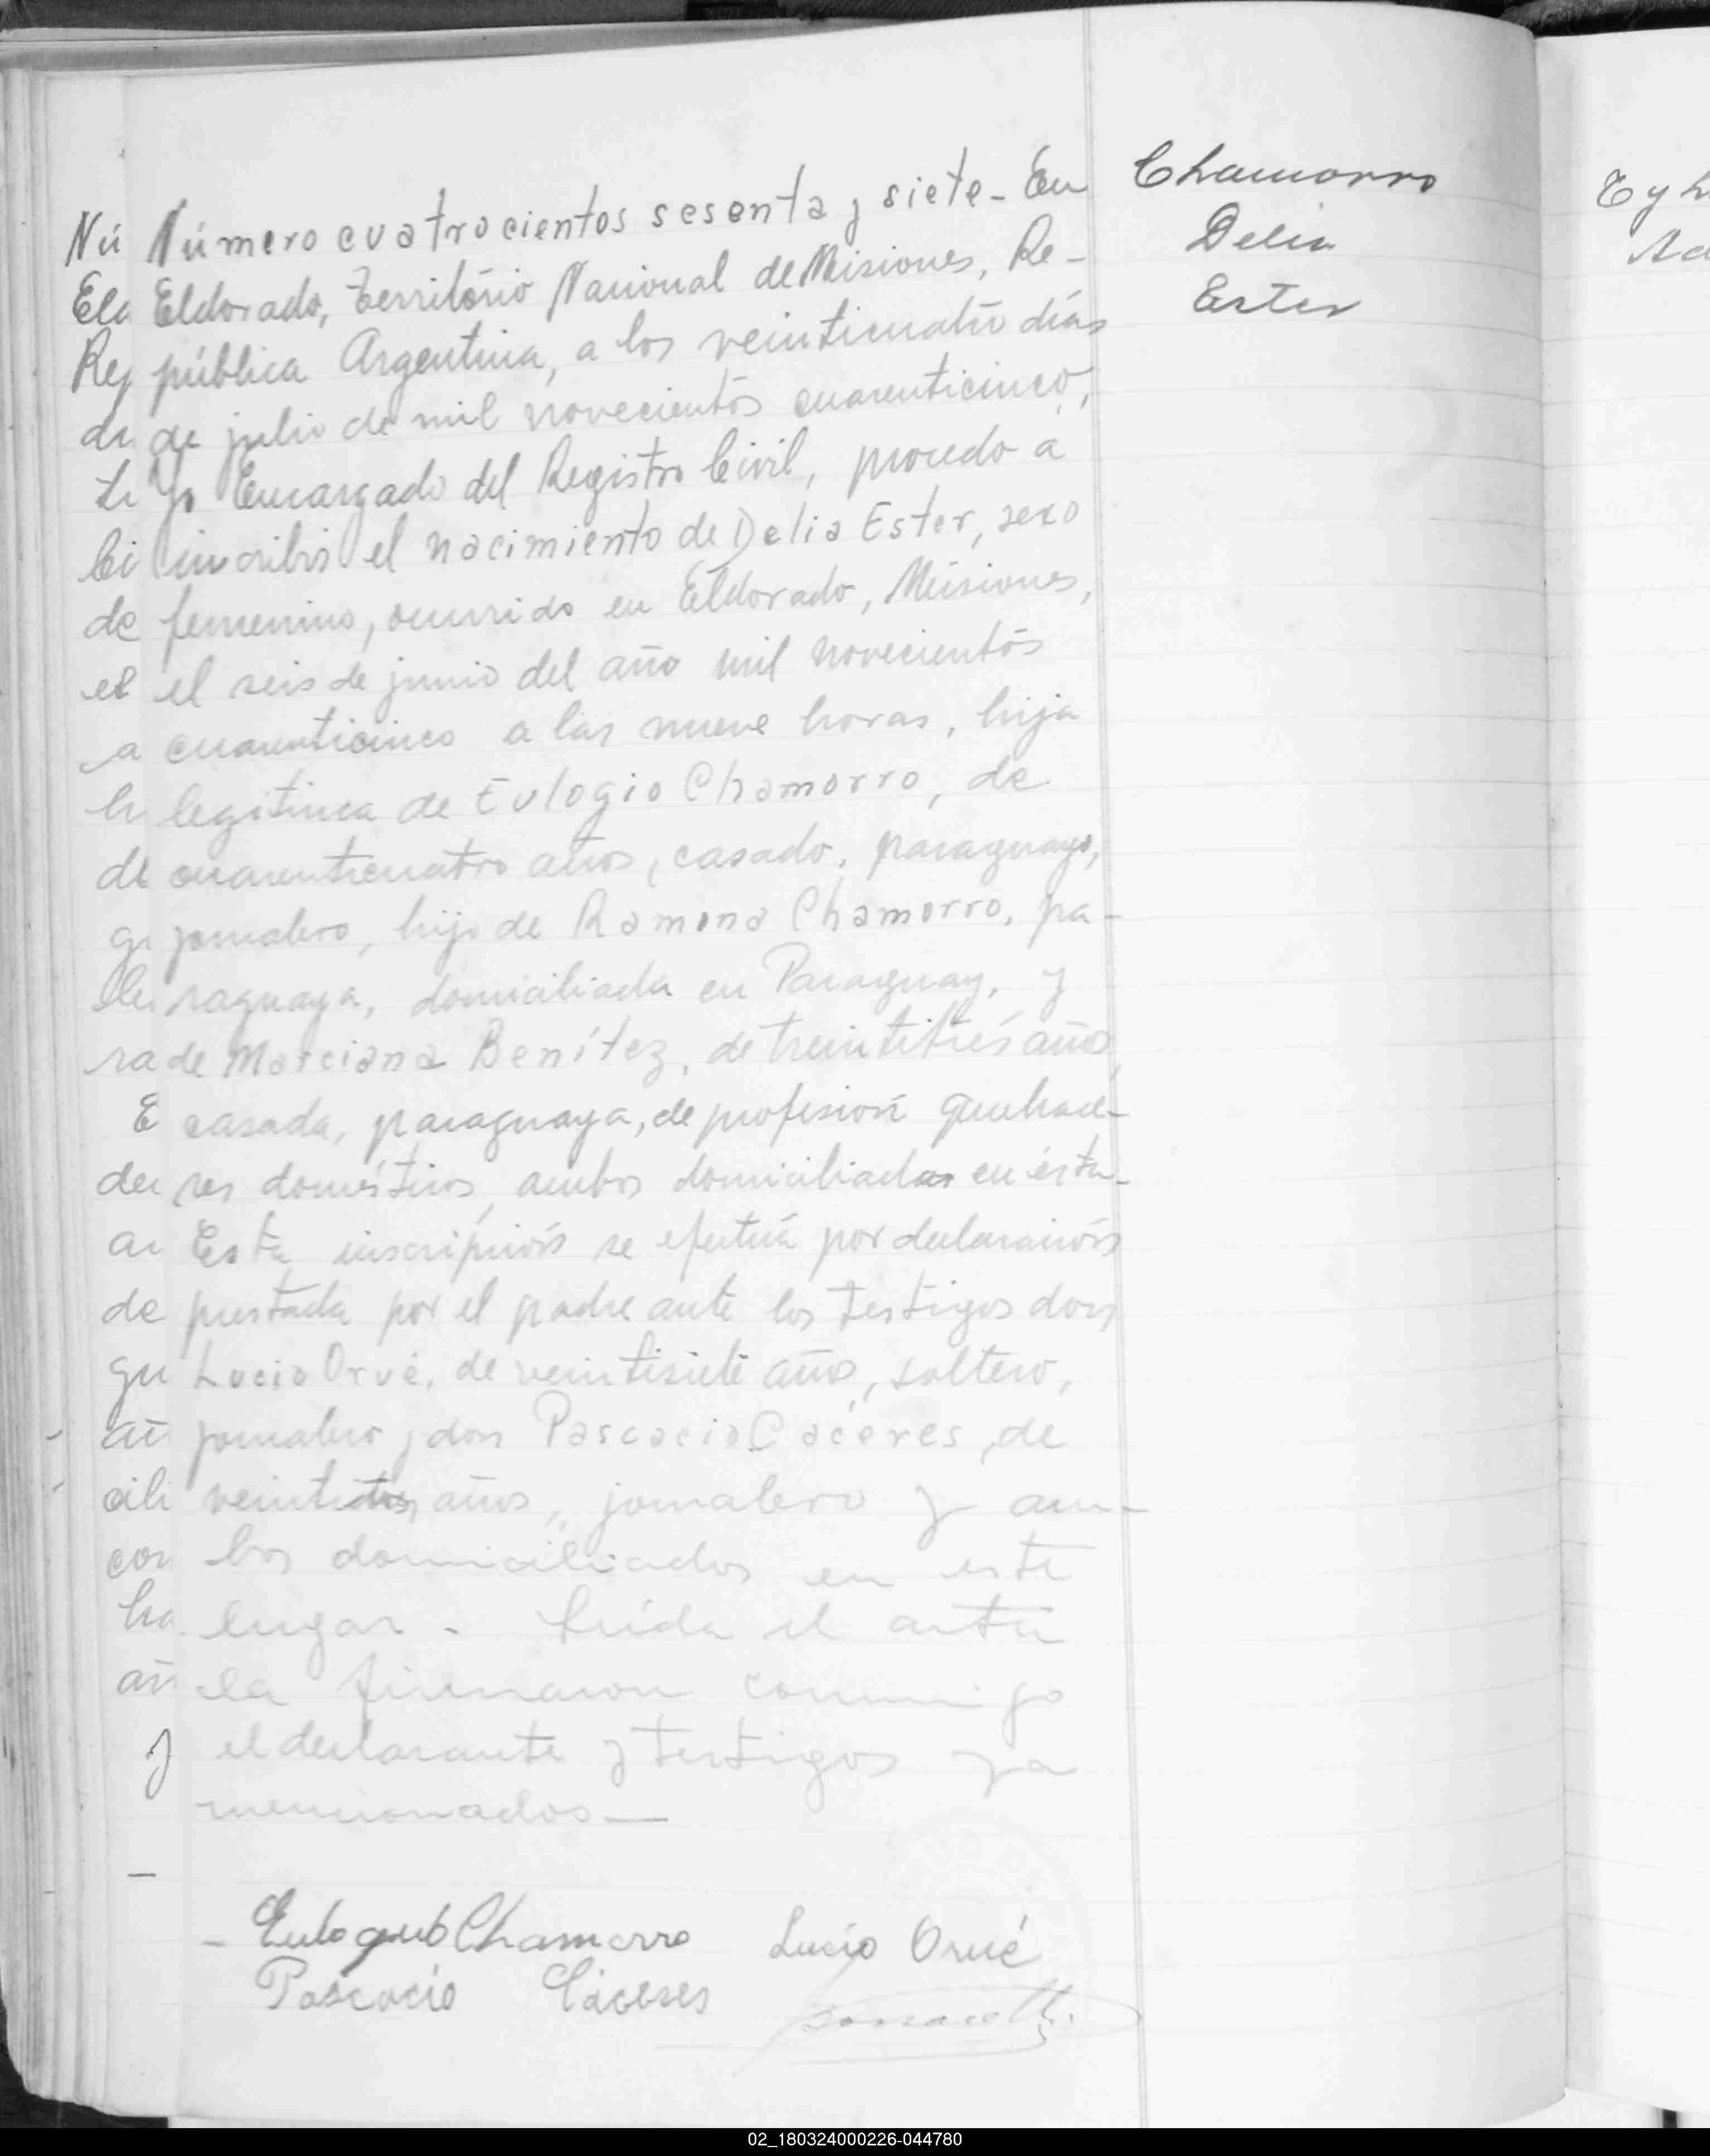 Número cuatrocientos sesenta y siete - En
Eldorado, Territorio Nacional de Misiones, Re-
pública Argentina, a los veinticuatro días
de julio de mil novecientos cuarenticinco,
Yo Encargado del Registro Civil, procedo a
inscribir el nacimiento de Delia Ester, sexo
femenino, ocurrido en Eldorado, Misiones,
el seis de junio del año mil novecientos
cuarenticinco a las nueve horas, hija
legitima de Eulogio Chamorro, de
cuarenticuatro años, casado, paraguayo,
jornalero, hijo de Ramona Chamorro, pa-
raguaya, domiciliada en Paraguay, y
de Marciana Benítez, de treintitrés años
casada, paraguaya, de profesión quehace-
res domésticos, ambos domiciliados en ésta-
Esta inscripción se efectúa por declaración
prestada por el padre ante los testigos don
Lucio Orué, de veintisiete años, soltero,
jornalero y don Pascacio Cáceres, de
veintidos años, jornalero y am-
bos domiciliados en este
lugar - Leída el acta
la firmaron conmigo
el declarante y testigos ya
mencionados—
Chamorro
Delia
Ester
Chamorro Lucio Orué
Pascacio Cáceres
02_180324000226-044780